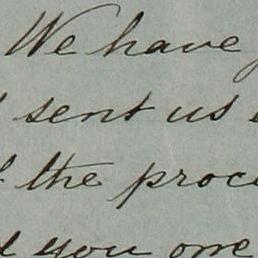 We have
sent us
the proce
you one